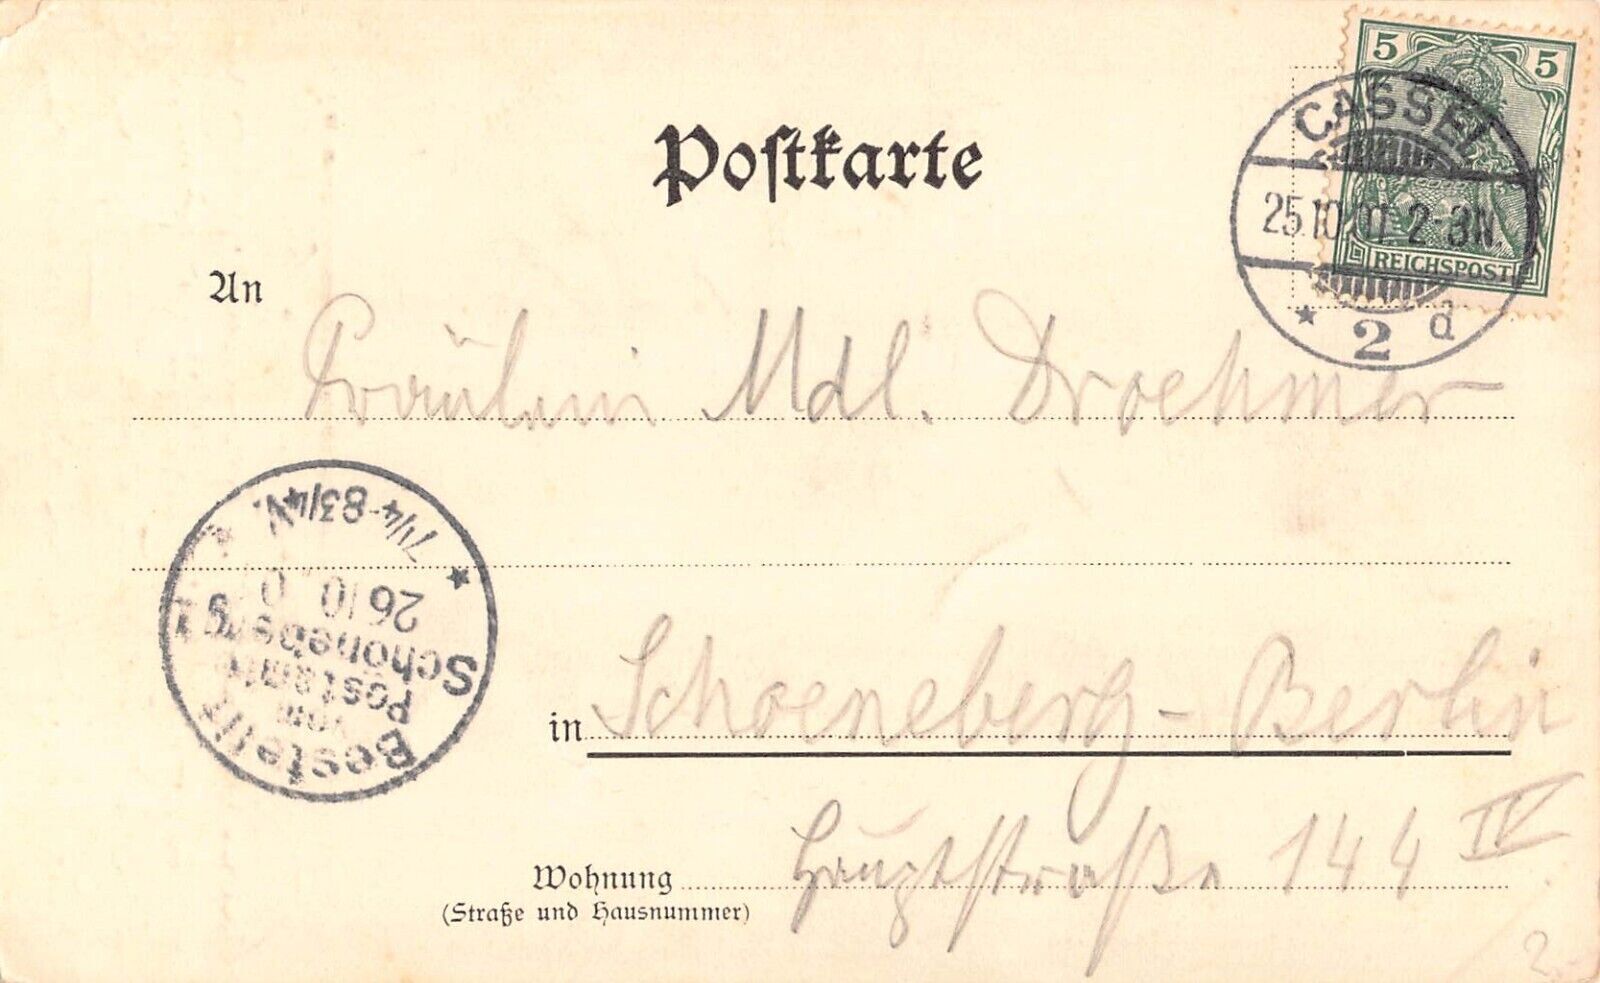 5 5
Postkarte
CASSEL
25.10.01 2-3N.
REICHSPOST
* 2 d
An
Fräulein Mdl. Droehmer
7 1/4-8 3/4 V.
* 26 10 0
Schöneberg 1
Postamte
vom
Bestellt
in Schoeneberg-Berlin
Wohnung Hauptstraße 144 IV
(Straße und Hausnummer)
2.-